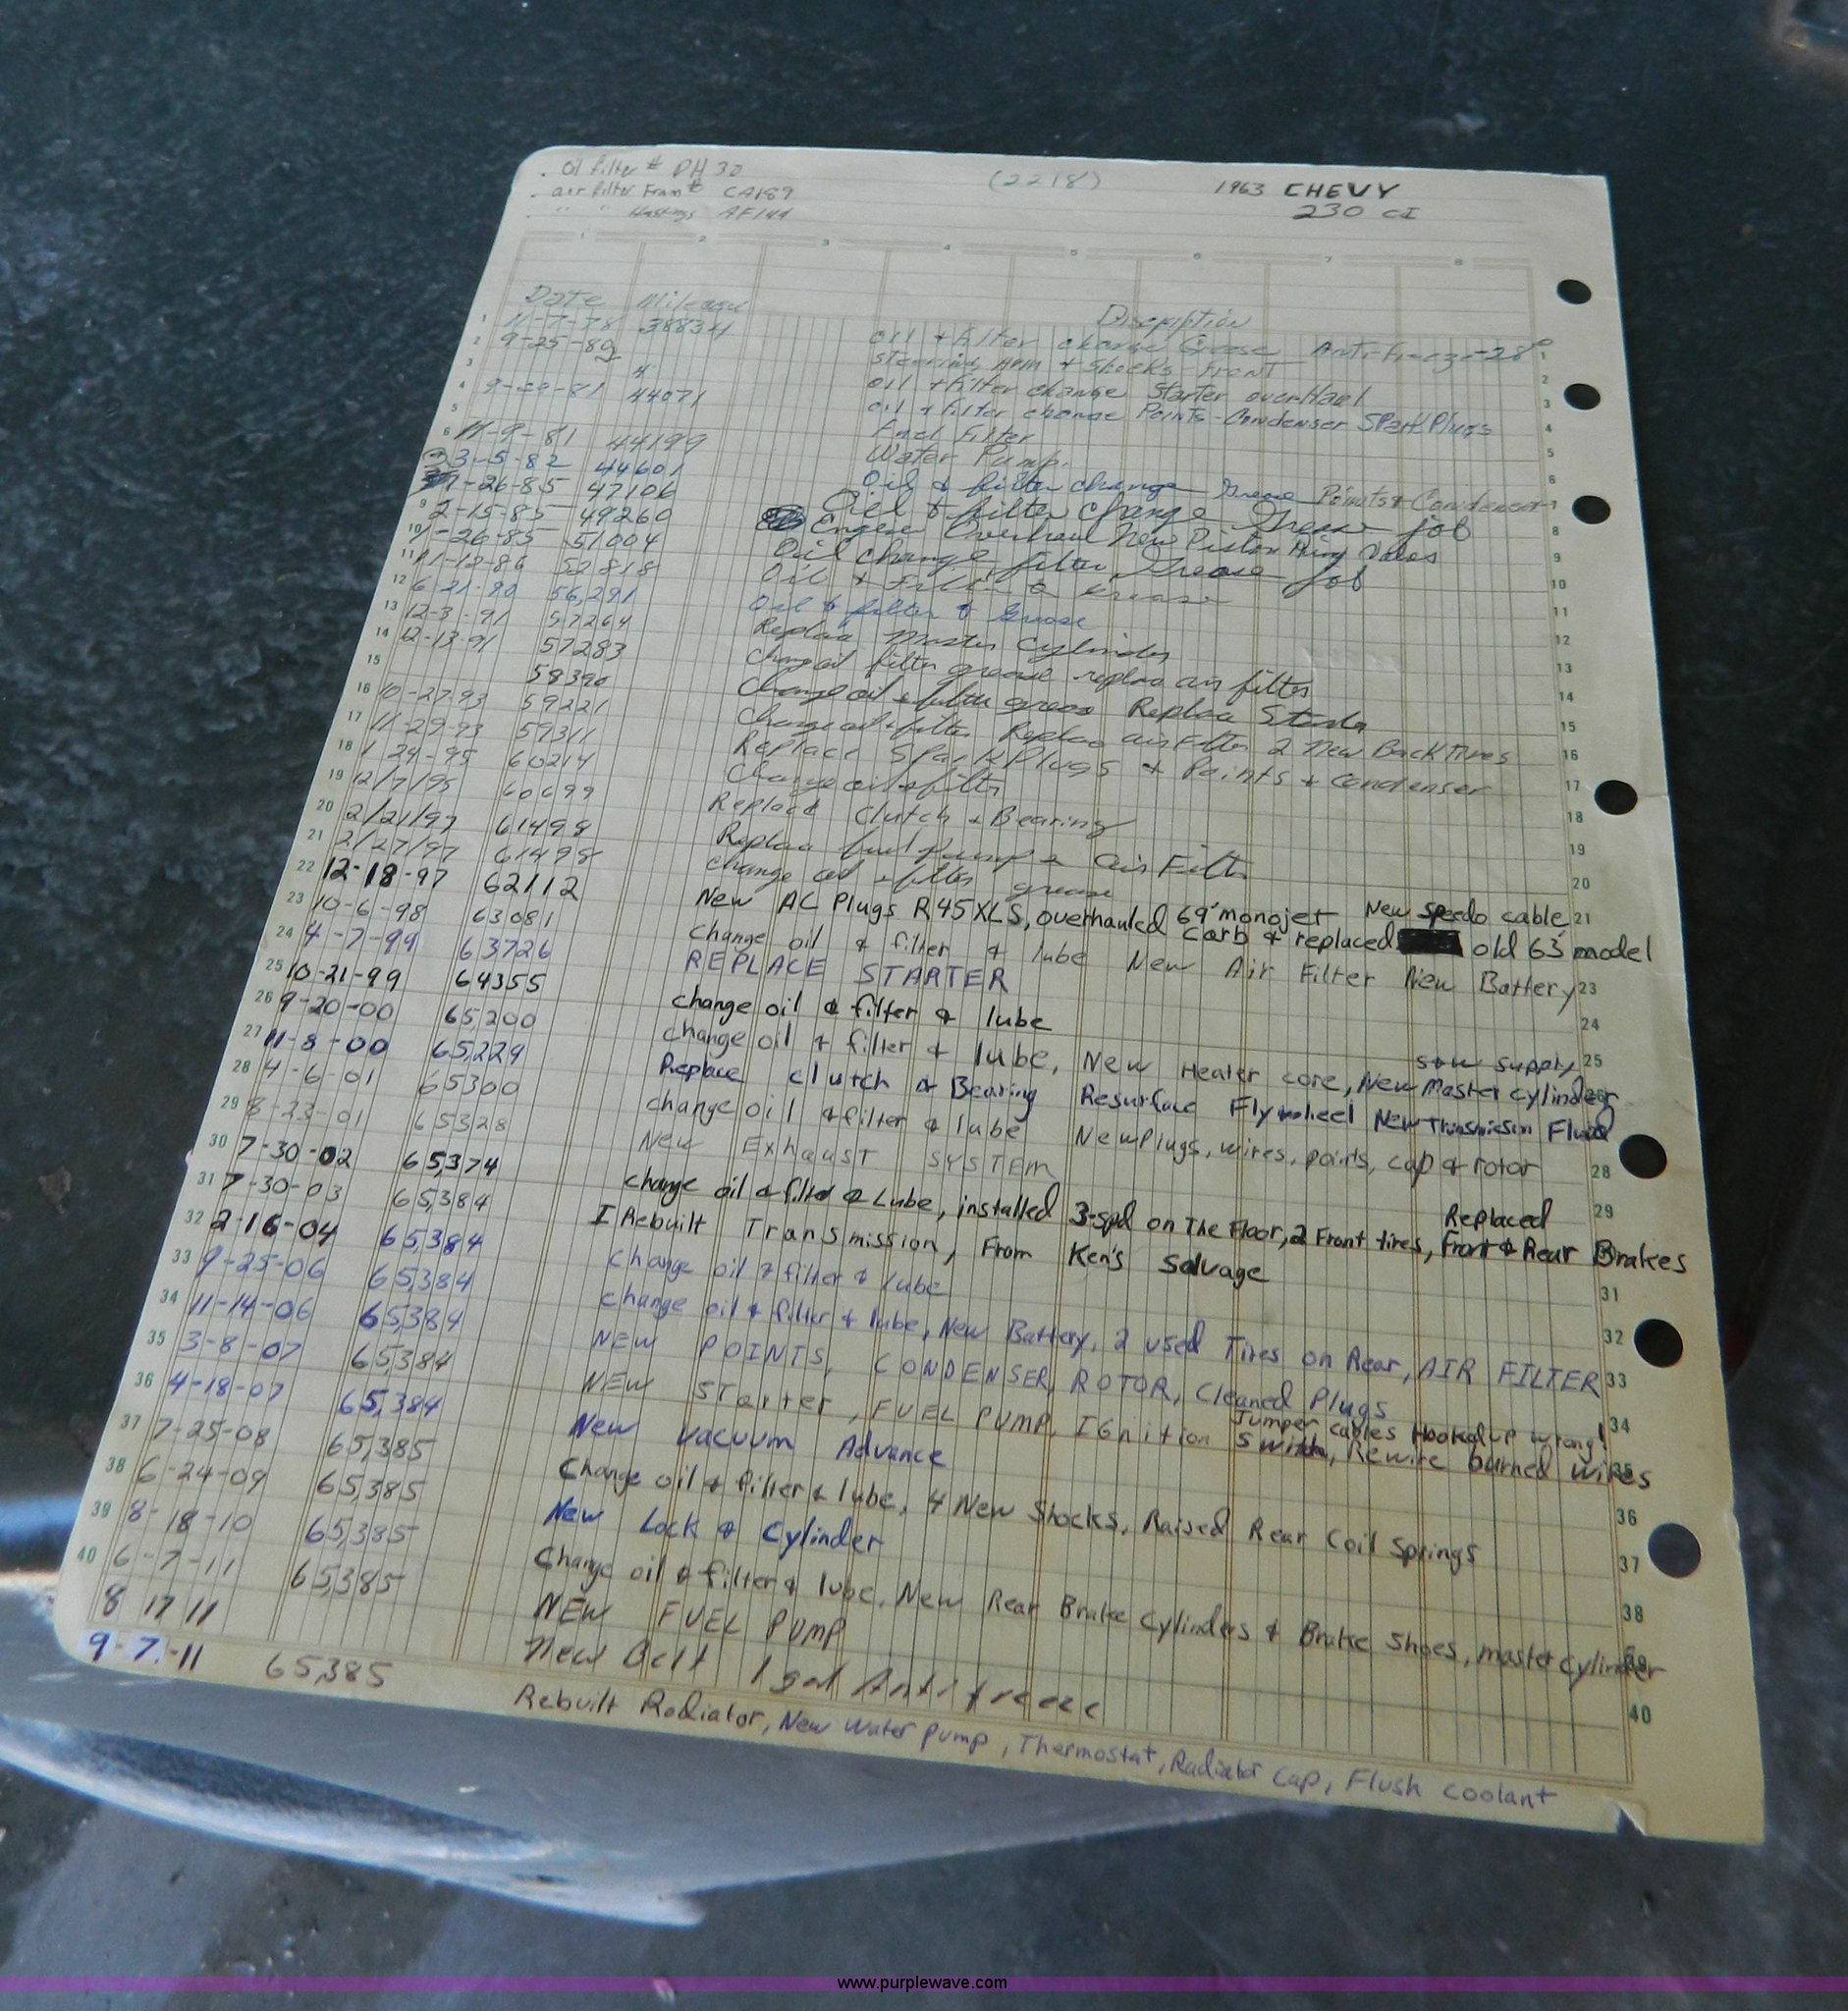 oil filter # PH 30
air filter Fram # CA189
" " Hastings AF144
(2218)
1963 CHEVY
230 CI
1 2 3 4 5 6 7 8
Date Mileage Discription
11-7-78 38834 oil + Filter change Grese Anti-Freeze -28°
9-25-80 Steering Arm + Shocks - Front
oil + Filter change Starter over-Hael
9-29-81 44071 oil + Filter change Points - Condenser Spark Plugs
Fuel Filter
11-9-81 44199 Water Pump.
3-5-82 44601 Oil & filter change Grease Points & Condenser
-26-85 47106 Oil & filter change Grease job
2-15-85 49260 Engine Overhaul New Piston Ring
-26-85 51004 Oil change filter Grease job
11-12-86 52818 Oil + Filter & Grease
6-21-90 56,291 Oil & filter & Grease
12-3-91 57264 Replace Master Cylinder
12-13-91 57283 Change oil filter grease replace air filter
58390 Change oil & filter grease Replace Starter
10-27-93 59221 Change oil + filter Replace air Filter 2 New Back Tires
11-29-93 59311 Replace Spark Plugs + Points + Condenser
1-24-95 60214 Change oil + filter
12/7/95 60699 Replace Clutch + Bearing
2/21/97 61498 Replace fuel Pump + Air Filter
2/27/97 61498 change oil + filter grease
12-18-97 62112 New AC Plugs R45XLS, overhauled 69' monojet New Speedo cable
carb & replaced old 63' model
10-6-98 63081 change oil & filter & lube New Air Filter New Battery
4-7-99 63726 REPLACE STARTER
10-21-99 64355 change oil & filter & lube
9-20-00 65,200 change oil + filter + lube, New Heater core, New Master cylinder
11-8-00 65,229 Replace clutch & Bearing Resurface Flywheel New Transmission Fluid
4-6-01 65300 change oil & filter & lube New Plugs, wires, points, cap & rotor
8-23-01 65328 New EXHAUST SYSTEM
7-30-02 65,374 change oil & filter & Lube, installed 3-spd on The Floor, 2 Front tires, Replaced Front & Rear Brakes
7-30-03 65,384 I Rebuilt Transmission, From Ken's Salvage
2-16-04 65,384 change oil & filter & lube
9-25-06 65,384 change oil & filter & lube, New Battery, 2 used Tires on Rear, AIR FILTER
11-14-06 65,384 NEW POINTS, CONDENSER, ROTOR, Cleaned Plugs
3-8-07 65,384 NEW STarter, FUEL PUMP, IGnition Switch, Rewire burned wires Jumper cables Hooked up wrong!
4-18-07 65,384 New Vacuum Advance
7-25-08 65,385 Change oil & filter & lube, 4 New Shocks, Raised Rear Coil Springs
6-24-09 65,385 New Lock & Cylinder
8-18-10 65,385 Change oil & filter & lube, New Rear Brake Cylinders & Brake Shoes, master cylinder
6-7-11 65,385 NEW FUEL PUMP
8 17 11 New Belt 1 gal Antifreeze
9-7-11 65,385 Rebuilt Radiator, New Water Pump, Thermostat, Radiator Cap, Flush Coolant
www.purplewave.com